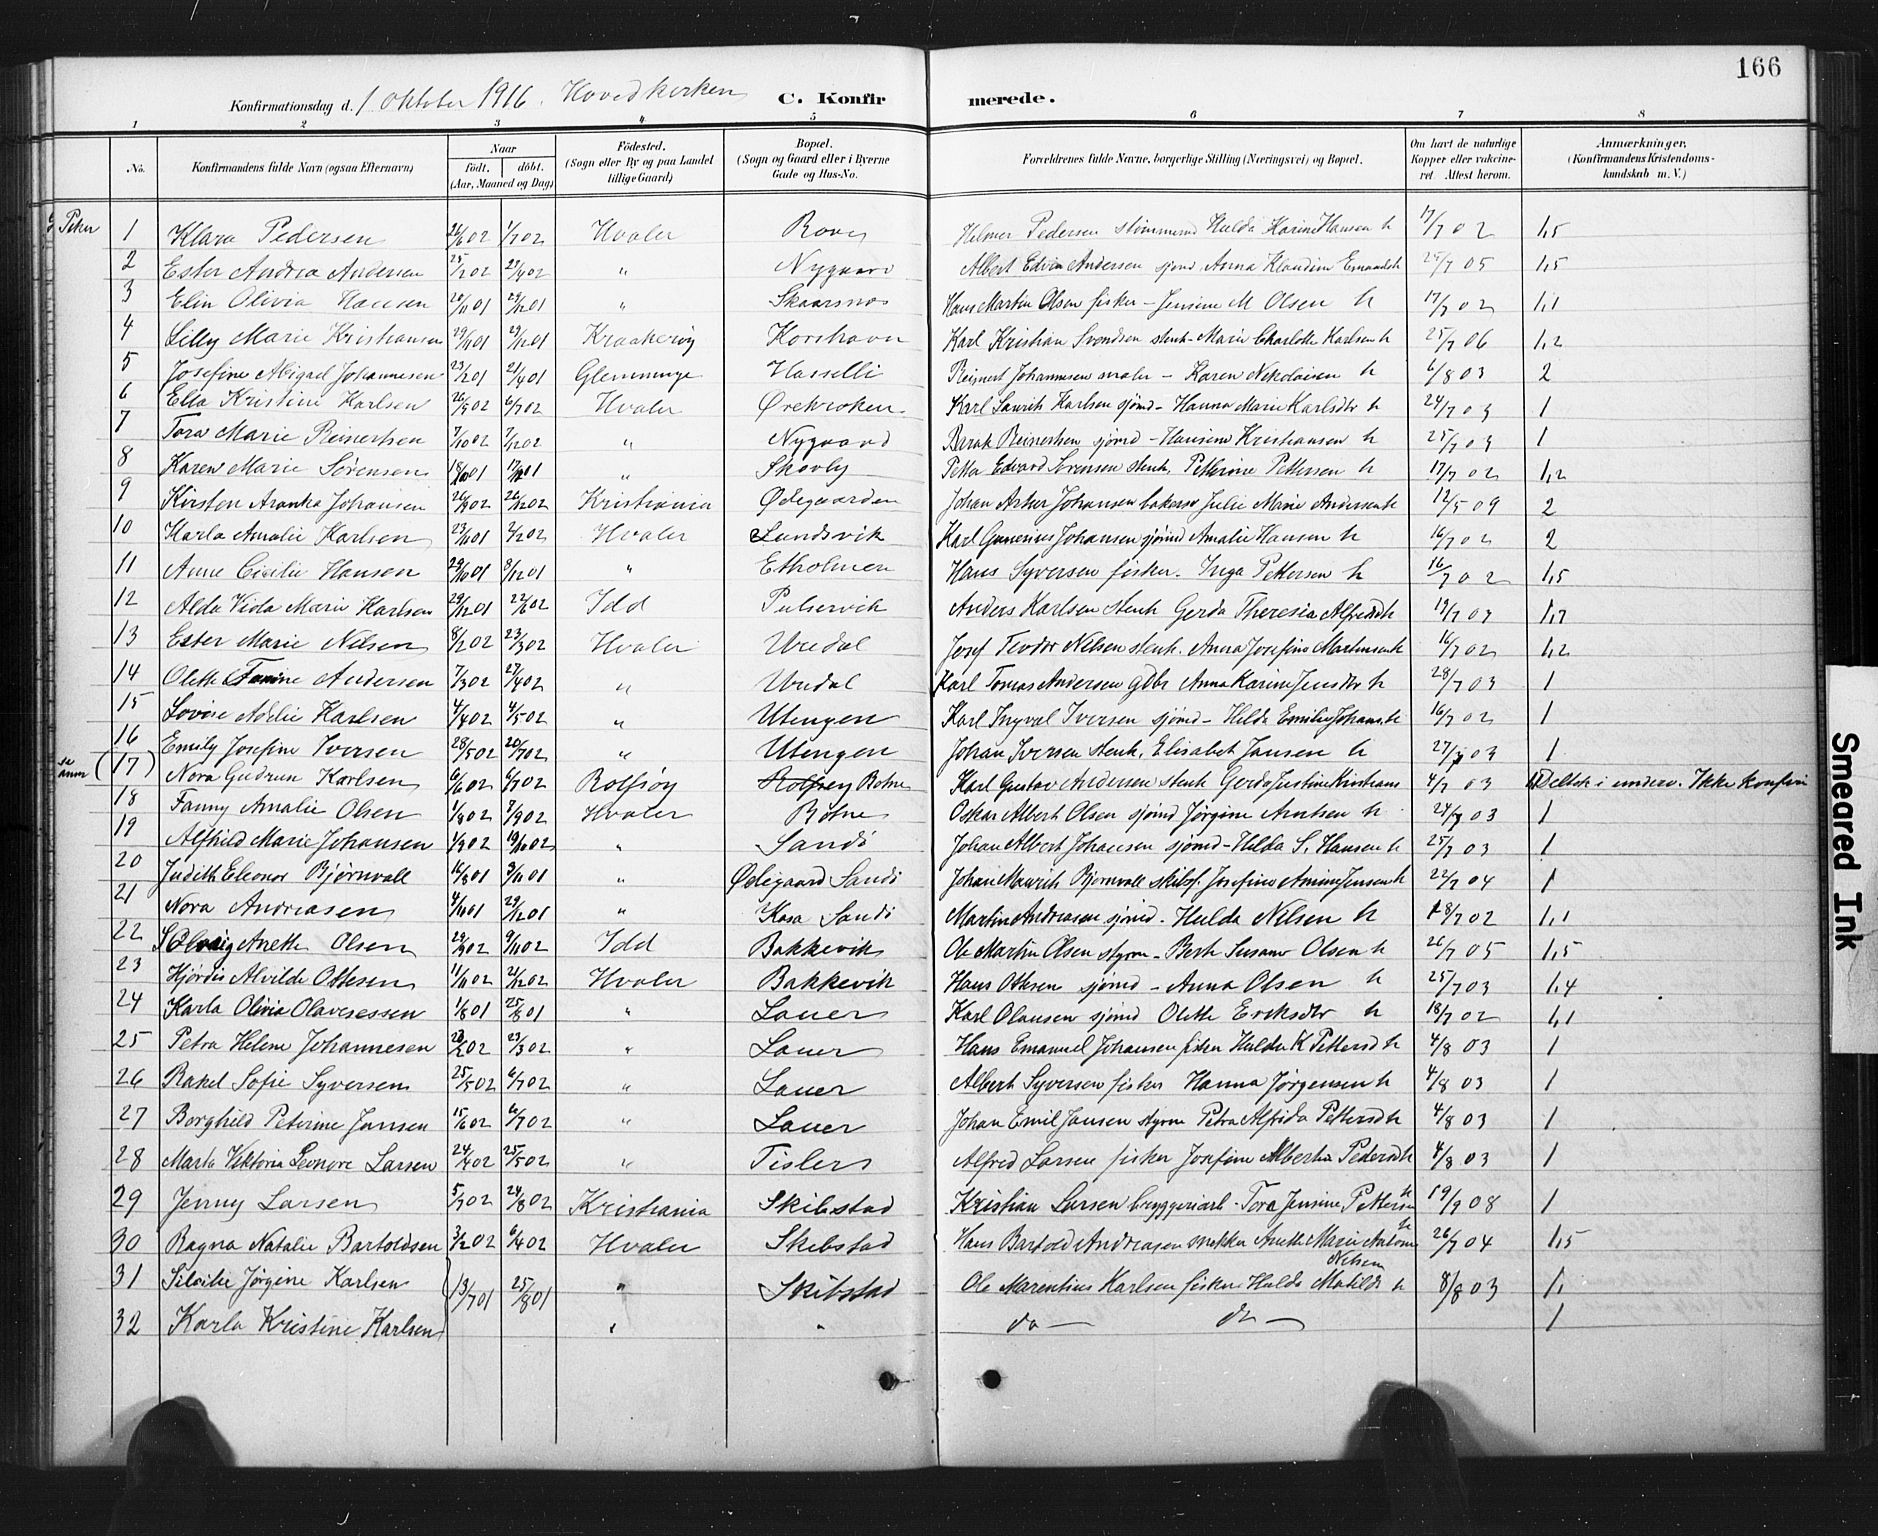 166
Konfirmationsdag d. 1 Oktober 1916. Hovedkirken C. Konfirmerede.
1 2 3 4 5 6 7 8
No. Konfirmandens fulde Navn (ogsaa Efternavn) Naar født. døbt. (Aar, Maaned og Dag) Fødested. (Sogn eller By og paa Landet tillige Gaard) Bopæl. (Sogn og Gaard eller i Byerne Gade og Hus-No. Forældrenes fulde Navne, borgerlige Stilling (Næringsvei) og Bopæl. Om havt de naturlige Kopper eller vakcineret. Attest herom. Anmærkninger. (Konfirmandens Kristendomskundskab m. V.)
Piker 1 Klara Pedersen 26/6 02 1/7 02 Hvaler Rove Helmer Pedersen Hulda Karine Hansen h 17/7 02 1,5
2 Ester Andrea Andersen 25/2 02 27/4 02 " Nygaard Albert Edvin Andersen sjømd. Anna Klaudine h 25/7 05 1,5
3 Elin Olivia Hansen 20/11 01 29/12 01 " Skaarsnes Hans Martin Olsen fisker - Jensine M Olsen h 17/7 02 1,1
4 Lilly Marie Kristiansen 29/11 01 29/12 01 Kraakerøy Korshavn Karl Kristian Svendsen stenh - Marie Charlotte Karlsen h 25/7 06 1,2
5 Josefine Abigael Johannesen 23/2 01 21/4 01 Glemminge Hasselli Reinert Johannesen maler - Karen Nikolaisen h 6/8 03 2
6 Ella Kristine Karlsen 26/5 02 6/7 02 Hvaler Ørekroken Karl Laurits Karlsen sjømd - Hanna Marie Karlsdtr h 24/7 03 1
7 Tora Marie Reinertsen 7/10 02 7/12 02 " Nygaard Barak Reinertsen sjømd - Hansine Kristiansen h 25/7 03 1
8 Karen Marie Sørensen 18/10 01 17/12 01 " Skovby Petter Edvard Sørensen stenh. Petterine Pettersen h 17/7 02 1,2
9 Kirsten Aranka Johansen 26/9 02 26/12 02 Kristiania Ødegaarden Johan Artur Johansen bakersv Julie Marie Andersen h 12/5 09 2
10 Karla Amalie Karlsen 23/11 01 2/2 02 Hvaler Lundsvik Karl Gunerius Johansen sjømd Amalie Hansen h 16/7 02 2
11 Anne Cicilie Hansen 29/10 01 8/12 01 " Etholmen Hans Syversen fisker. Inga Pettersen h 16/7 02 1,5
12 Alda Viola Marie Karlsen 29/12 01 22/6 02 Idd Pulservik Anders Karlsen stenh Gerda Theresia Alfredsd h 19/7 03 1,7
13 Ester Marie Nilsen 8/2 02 23/3 02 Hvaler Uredal Josef Teodor Nilsen stenh. Anna Josefine Martinsen h 16/7 02 1,2
14 Olette Andersen 7/3 02 27/4 02 " Uredal Karl Tomas Andersen Gdbr Anna Karine Jensdtr h 28/7 03 1
15 Lovise Adelie Karlsen 4/4 02 4/5 02 " Utengen Karl Ingval Iversen sjømd - Hilda Emilie Johans h 16/7 02 1
16 Emily Josefine Iversen 28/5 02 20/7 02 " Utengen Johan Iversen stenh. Elisabet Jansen h 27/7 03 1
se anm (17) Nora Gudrun Karlsen 6/6 02 6/7 02 Rolfsøy Rolfsøy Botne Karl Gustav Andersen stenh Gerda Justine Kristians 4/7 03 Deltok i underv. Ikke konfir
18 Fanny Amalie Olsen 1/8 02 7/9 02 Hvaler Botne Oskar Albert Olsen sjømd Jørgine Arntsen h 24/7 03 1
19 Alfhild Marie Johansen 1/9 02 19/10 02 " Sandø Johan Albert Johansen sjømd - Hilda S. Hansen h 25/7 03 1
20 Judith Eleonor Bjørnvall 16/8 01 3/11 01 " Ødegaard Sandø Johan Maurits Bjørnvall skibsf. Josefine Amine Jensen h 22/7 04 1
21 Nora Andreasen 4/11 01 29/12 01 " Kasa Sandø Martin Andreasen sjømd. Hulda Nilsen h 18/7 02 1,1
22 Solveig Anette Olsen 29/9 02 9/11 02 Idd Bakkevik Ole Martin Olsen styrm - Berth Susanne Olsen h 26/7 05 1,5
23 Hjørdis Alvilde Ottesen 11/11 02 21/12 02 Hvaler Bakkevik Hans Ottesen sjømd - Anna Olsen h 25/7 03 1,4
24 Karla Olivia Olavesessen 1/8 01 25/8 01 " Lauer Karl Olausen sjømd Olette Eriksdtr h 18/7 02 1,1
25 Petra Helene Johannesen 20/2 02 23/3 02 " Lauer Hans Emanuel Johansen fisker Hulda K Pettersd h 4/8 03 1
26 Rakel Sofie Syversen 25/5 02 6/7 02 " Lauer Albert Syversen fisker Hanna Jørgensen h 4/8 03 1
27 Borghild Peterine Jansen 15/6 02 6/7 02 " Lauer Johan Emil Jansen styrm Petra Alfrida Pettersd h 4/8 03 1
28 Marta Viktoria Leonore Larsen 24/4 02 25/5 02 " Tisler Alfred Larsen fisker Josefine Albertine Pedersd h 4/8 03 1
29 Jenny Larsen 5/7 02 24/8 02 Kristiania Skibstad Kristian Larsen bryggeriarb - Tora Jensine Pettersen h 19/9 08 1
30 Ragna Natalie Bartoldsen 3/2 02 6/4 02 Hvaler Skibstad Hans Bartold Andreasen snekker Anette Marie h 26/7 04 1,5
31 Silsilie Jørgine Karlsen 13/7 01 25/8 01 " Skibstad Ole Marentius Karlsen fisker. Hulda Matilde Nilsen h 8/8 03 1,
32 Karla Kristine Karlsen " " do — do — 1
Smeared Ink